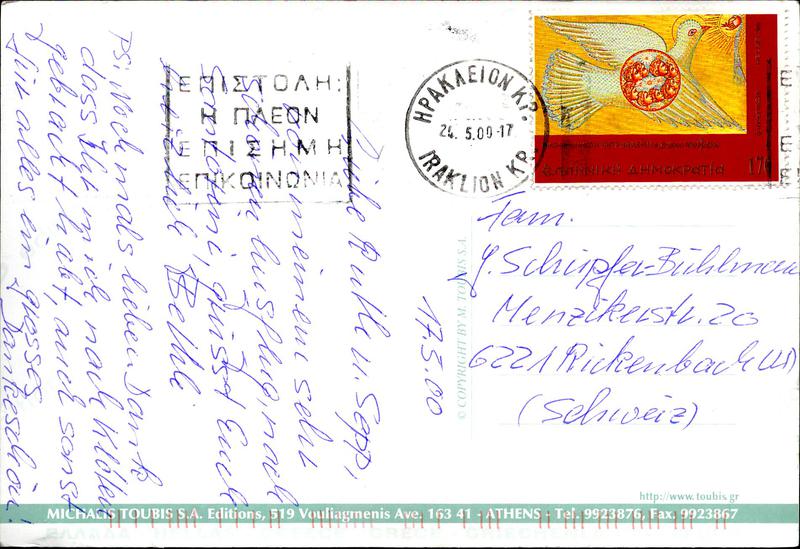 ΕΠΙΣΤΟΛΗ:
Η ΠΛΕΟΝ
ΕΠΙΣΗΜΗ
ΕΠΙΚΟΙΝΩΝΙΑ
ΗΡΑΚΛΕΙΟΝ ΚΡ.
24. 5.00-17
IRAKLION KP.
ΕΛΛΗΝΙΚΗ ΔΗΜΟΚΡΑΤΙΑ 170
17.5.00
Liebe Ruth u. Sepp,
von meinem sehr
schönen Ausflug nach
Santorini, grüsst Euch
Bethli
PS: Nochmals lieben Dank
dass Ihr mich nach Kloten
gebracht habt, auch sonst
für alles ein grosses
Dankeschön!
Fam.
J. Schüpfer-Bühlmann
Menzikerstr. 20
6221 Rickenbach LU
(Schweiz)
© COPYRIGHT BY M. TOUBIS S.A.
http://www.toubis.gr
MICHALIS TOUBIS S.A. Editions, 519 Vouliagmenis Ave. 163 41 - ATHENS - Tel. 9923876, Fax: 9923867